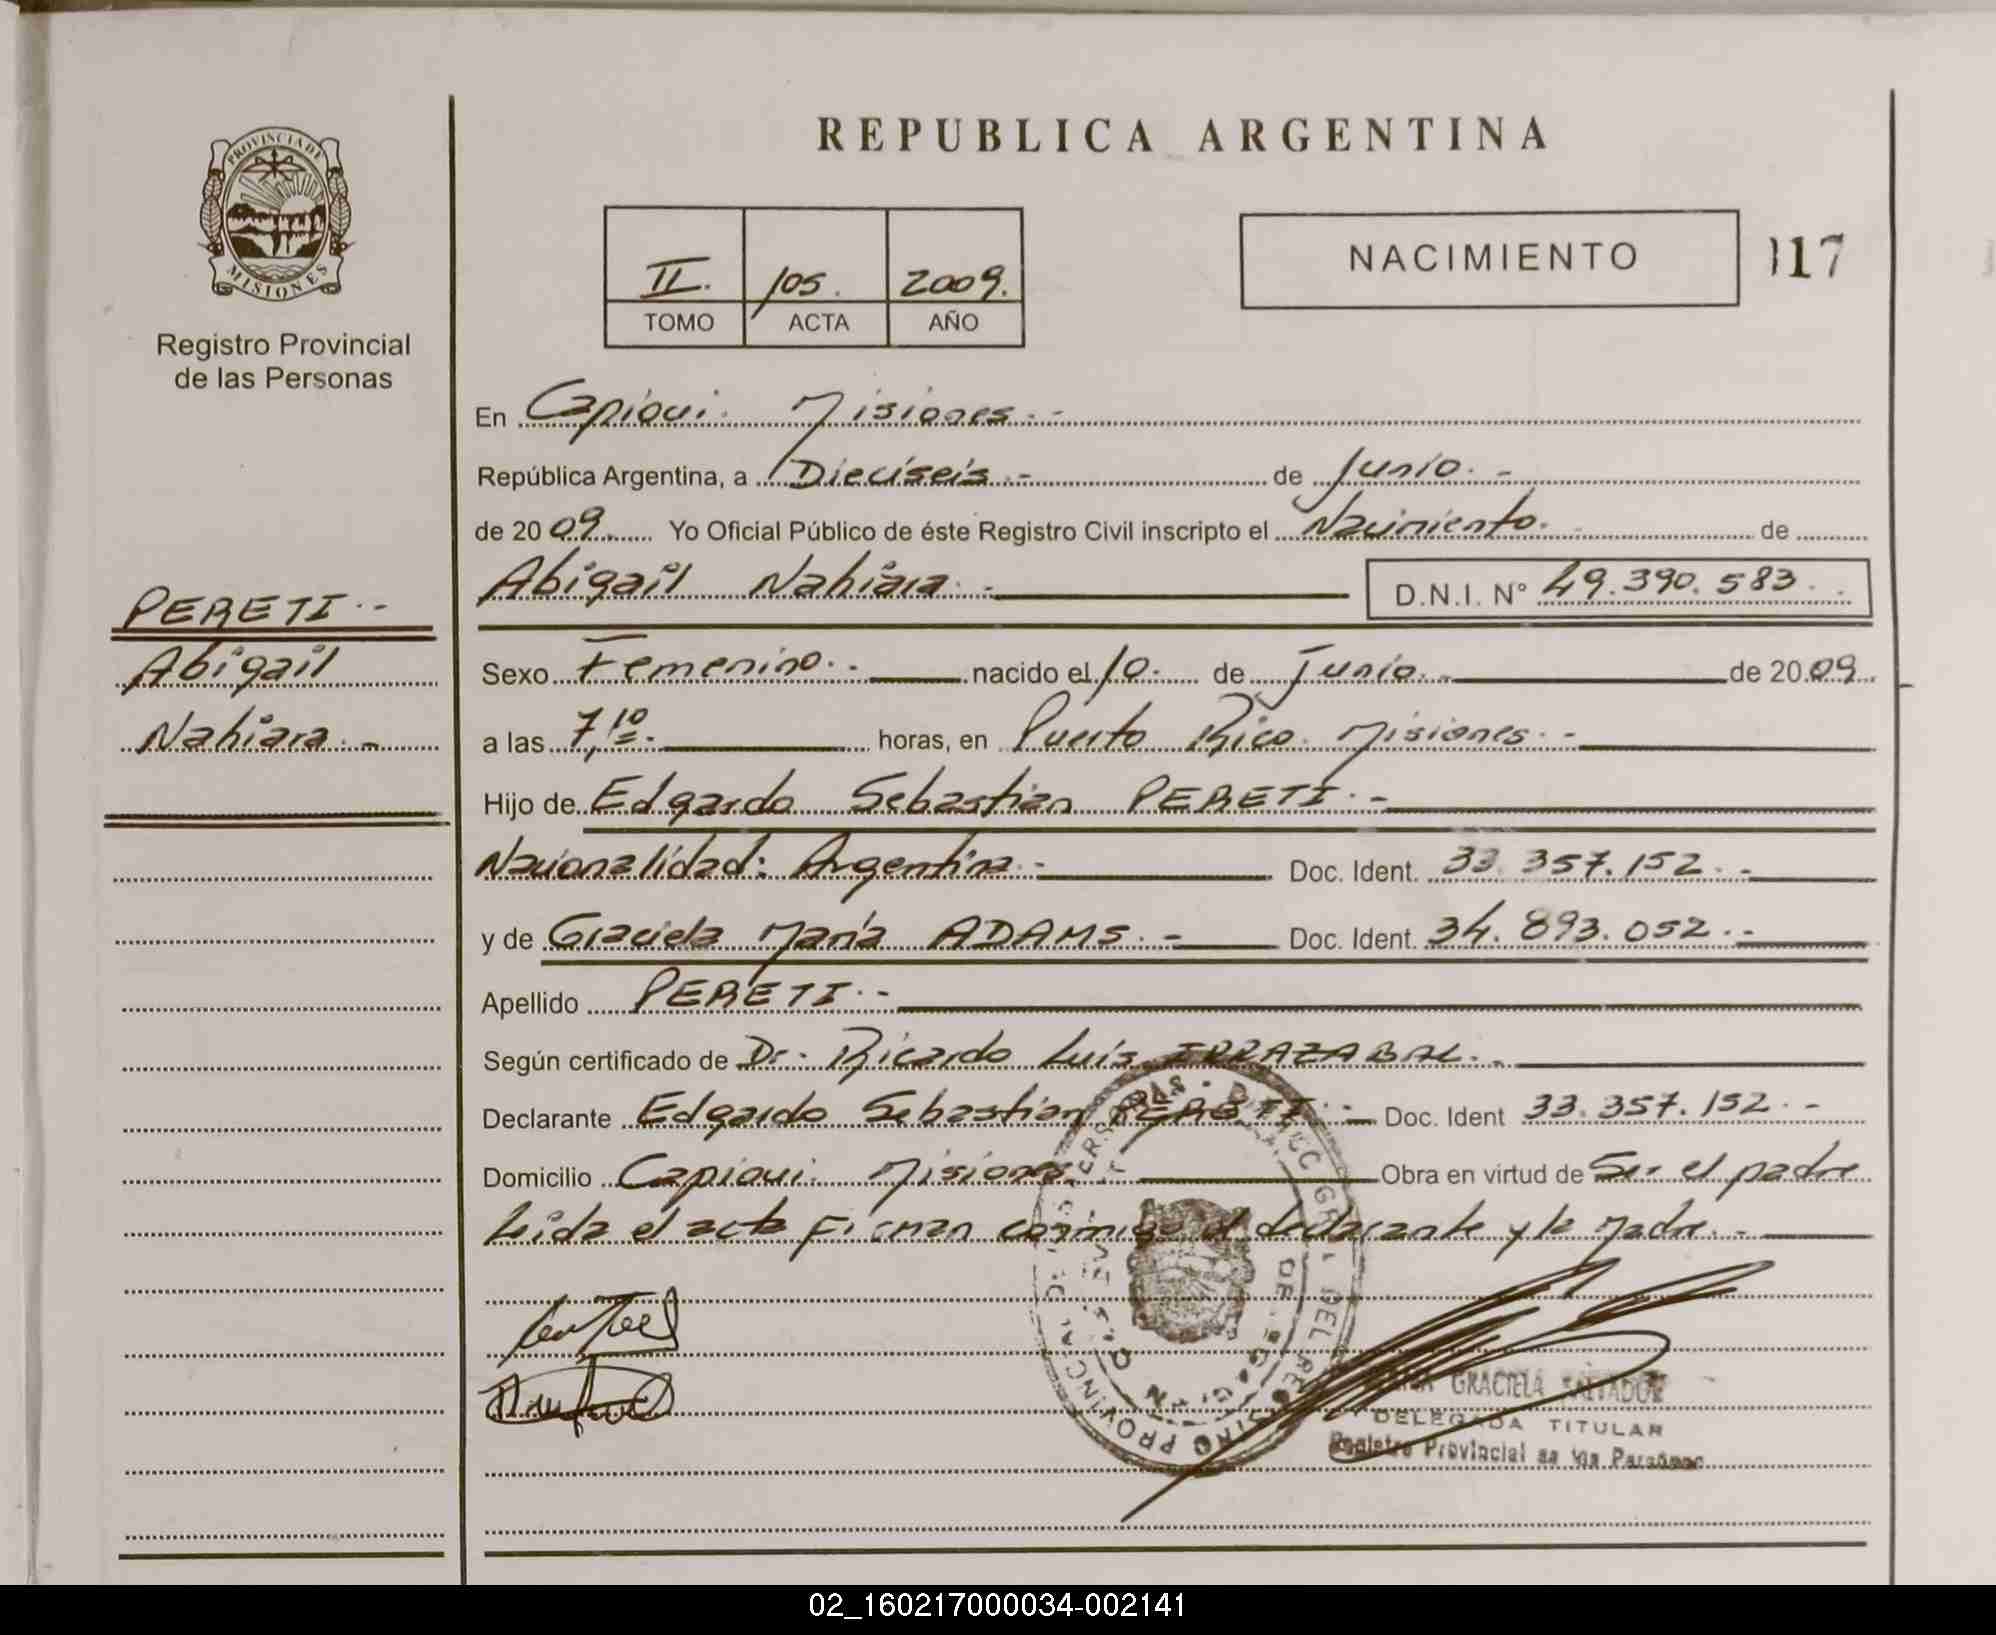 REPUBLICA ARGENTINA
PROVINCIA DE
MISIONES
Registro Provincial
de las Personas
II. 105. 2009.
TOMO ACTA AÑO
NACIMIENTO
117
En Capioui. Misiones.-
República Argentina, a Dieciseis.- de Junio.-
de 2009. Yo Oficial Público de éste Registro Civil inscripto el Nacimiento. de
Abigail Nahiara.- D.N.I. N° 49.390.583.
PERETI.-
Abigail
Nahiara.-
Sexo Femenino.- nacido el 10. de Junio.- de 2009.
a las 7,10. horas, en Puerto Rico. Misiones.-
Hijo de Edgardo Sebastian PERETI.-
Nacionalidad: Argentina.- Doc. Ident. 33.357.152.-
y de Graciela María ADAMS.- Doc. Ident. 34.893.052.-
Apellido PERETI.-
Según certificado de Dr. Ricardo Luis IRRAZABAL.-
Declarante Edgardo Sebastian PERETI.- Doc. Ident 33.357.152.-
Domicilio Capioui. Misiones. Obra en virtud de Ser el padre
Leida el acta firman conmigo el declarante y la Madre.-
GRACIELA
DELEGADA TITULAR
Registro Provincial de las Personas
02_160217000034-002141